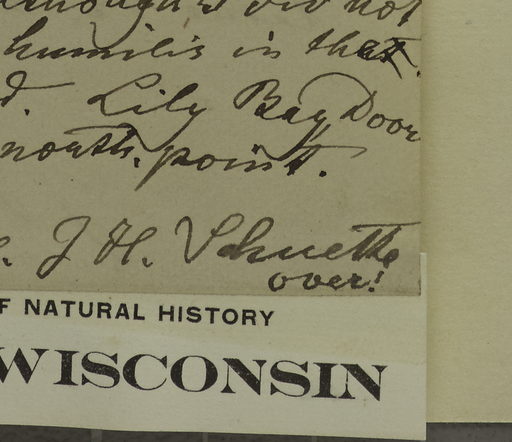 although I did not
humilis in that.
d. Lily Bay Door
north point.
J. H. Schuette
over!
F NATURAL HISTORY
WISCONSIN